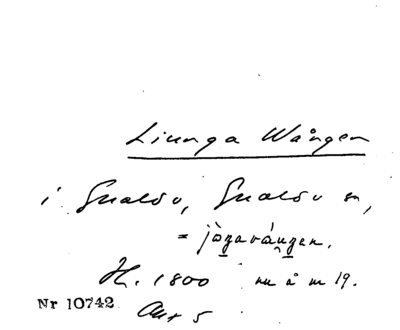 Liunga Wången
i Gualöv, Gualöv sn,
= jògavá̀ŋgen.
H. 1800 nu å m 19.
Nr 10742
Akt 5